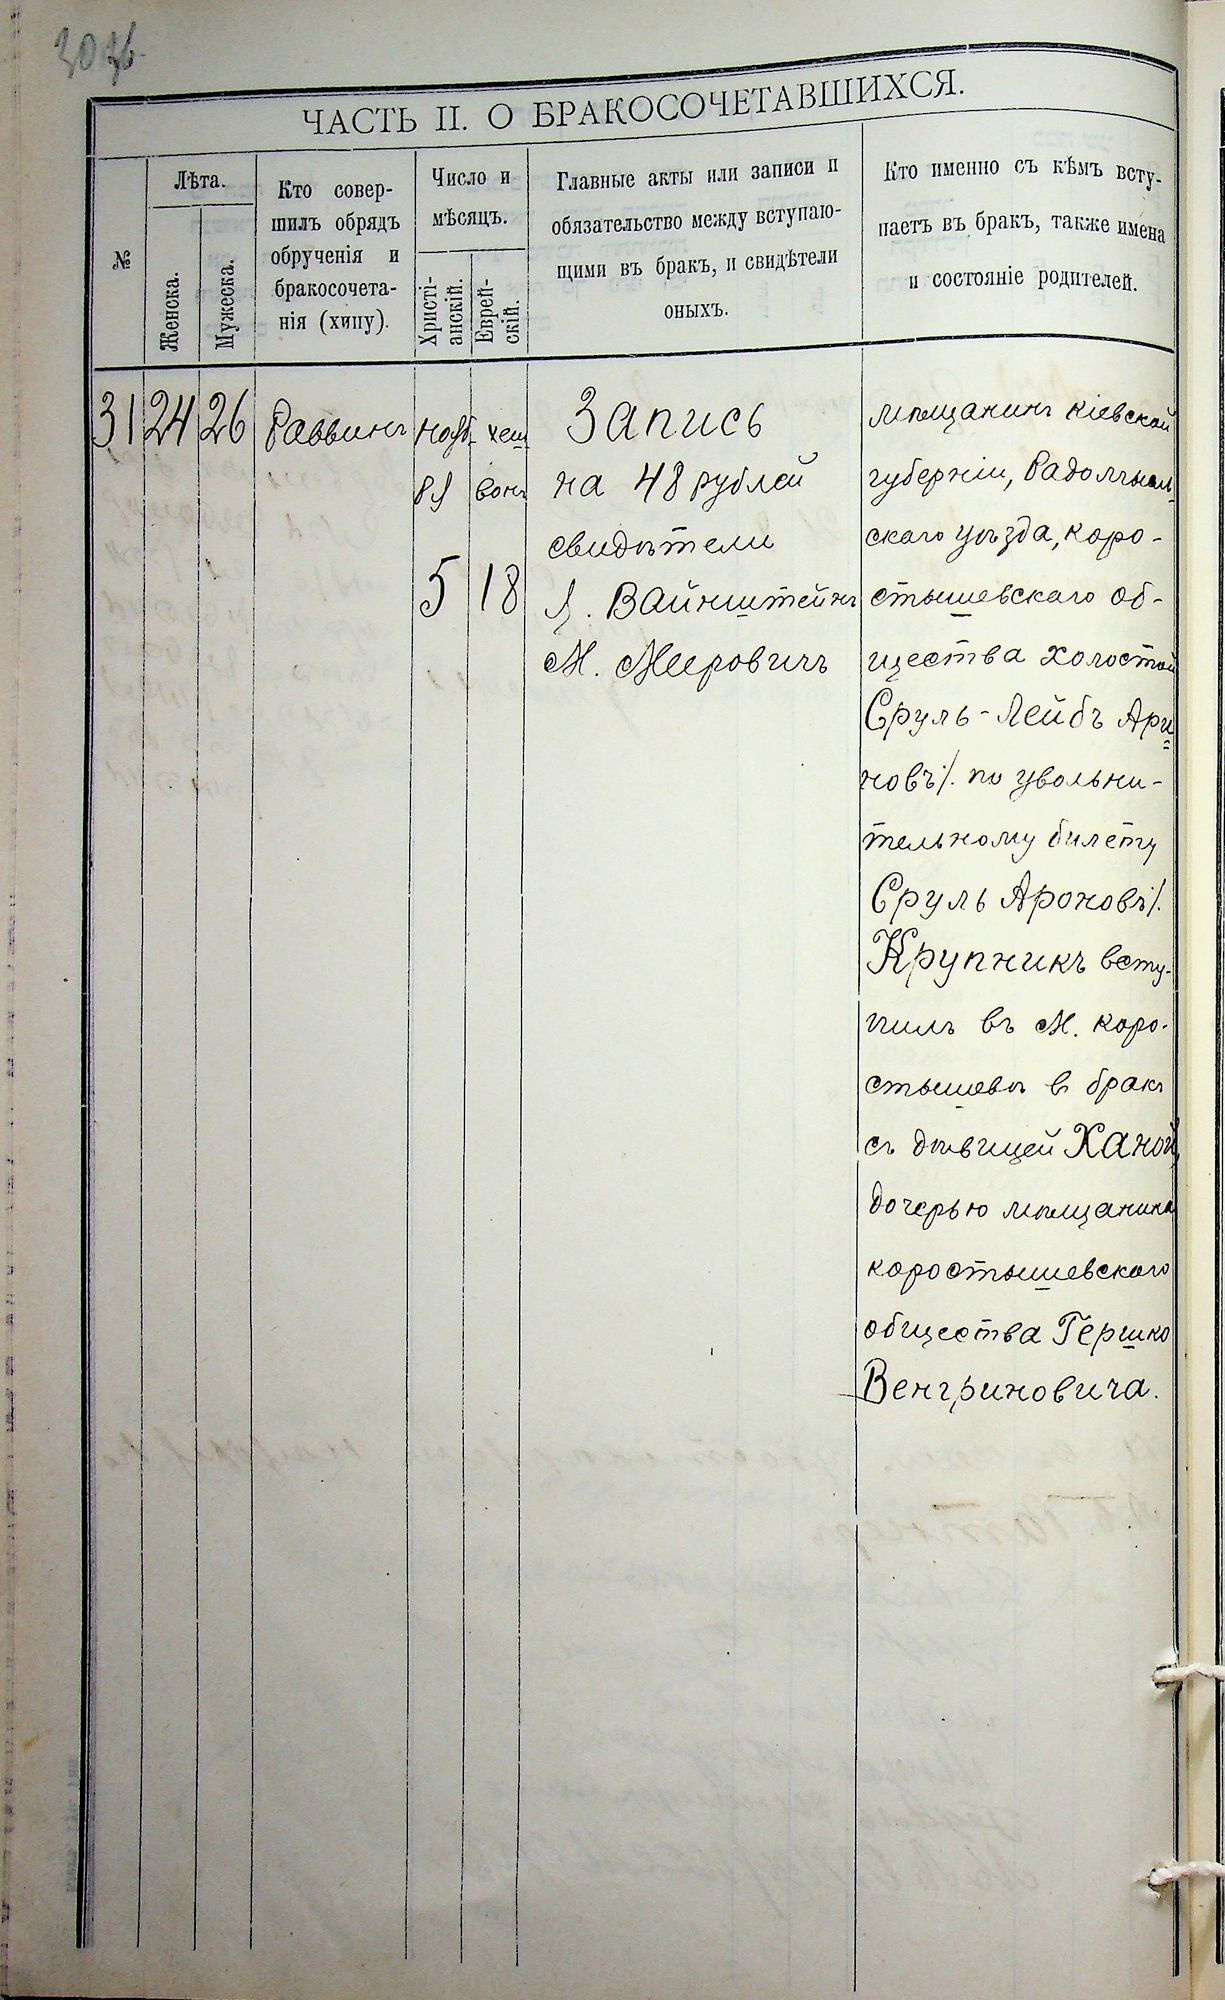 ЧАСТЬ II. О БРАКОСОЧЕТАВШИХСЯ.
№
Лѣта.
Женска.
Мужеска.
Кто совер-
шилъ обрядъ
обрученія и
бракосочета-
нія (хипу).
Число и
мѣсяцъ.
Христі-
анскій.
Еврей-
скій.
Главные акты или записи и
обязательство между вступаю-
щими въ бракъ, и свидѣтели
оныхъ.
Кто именно съ кѣмъ всту-
паетъ въ бракъ, также имена
и состояніе родителей.
31
24
26
Раввинъ
5
хеш
вонъ
18
Запись
на 48 рублей
свидѣтели
Вайнштейнъ
М. Меровичъ
мѣщанинъ кіевской
губерніи, Радомысль
скаго уѣзда, коро-
стышевскаго об-
щества холостой
Сруль-Лейбъ Ари
новъ/. по увольни-
тельному билету
Сруль Ароновъ/.
Крупникъ всту-
пилъ въ м. коро-
стышевѣ в бракъ
съ дѣвицей Ханой,
дочерью мѣщанина
коростышевскаго
общества Гершко
Венгриновича.